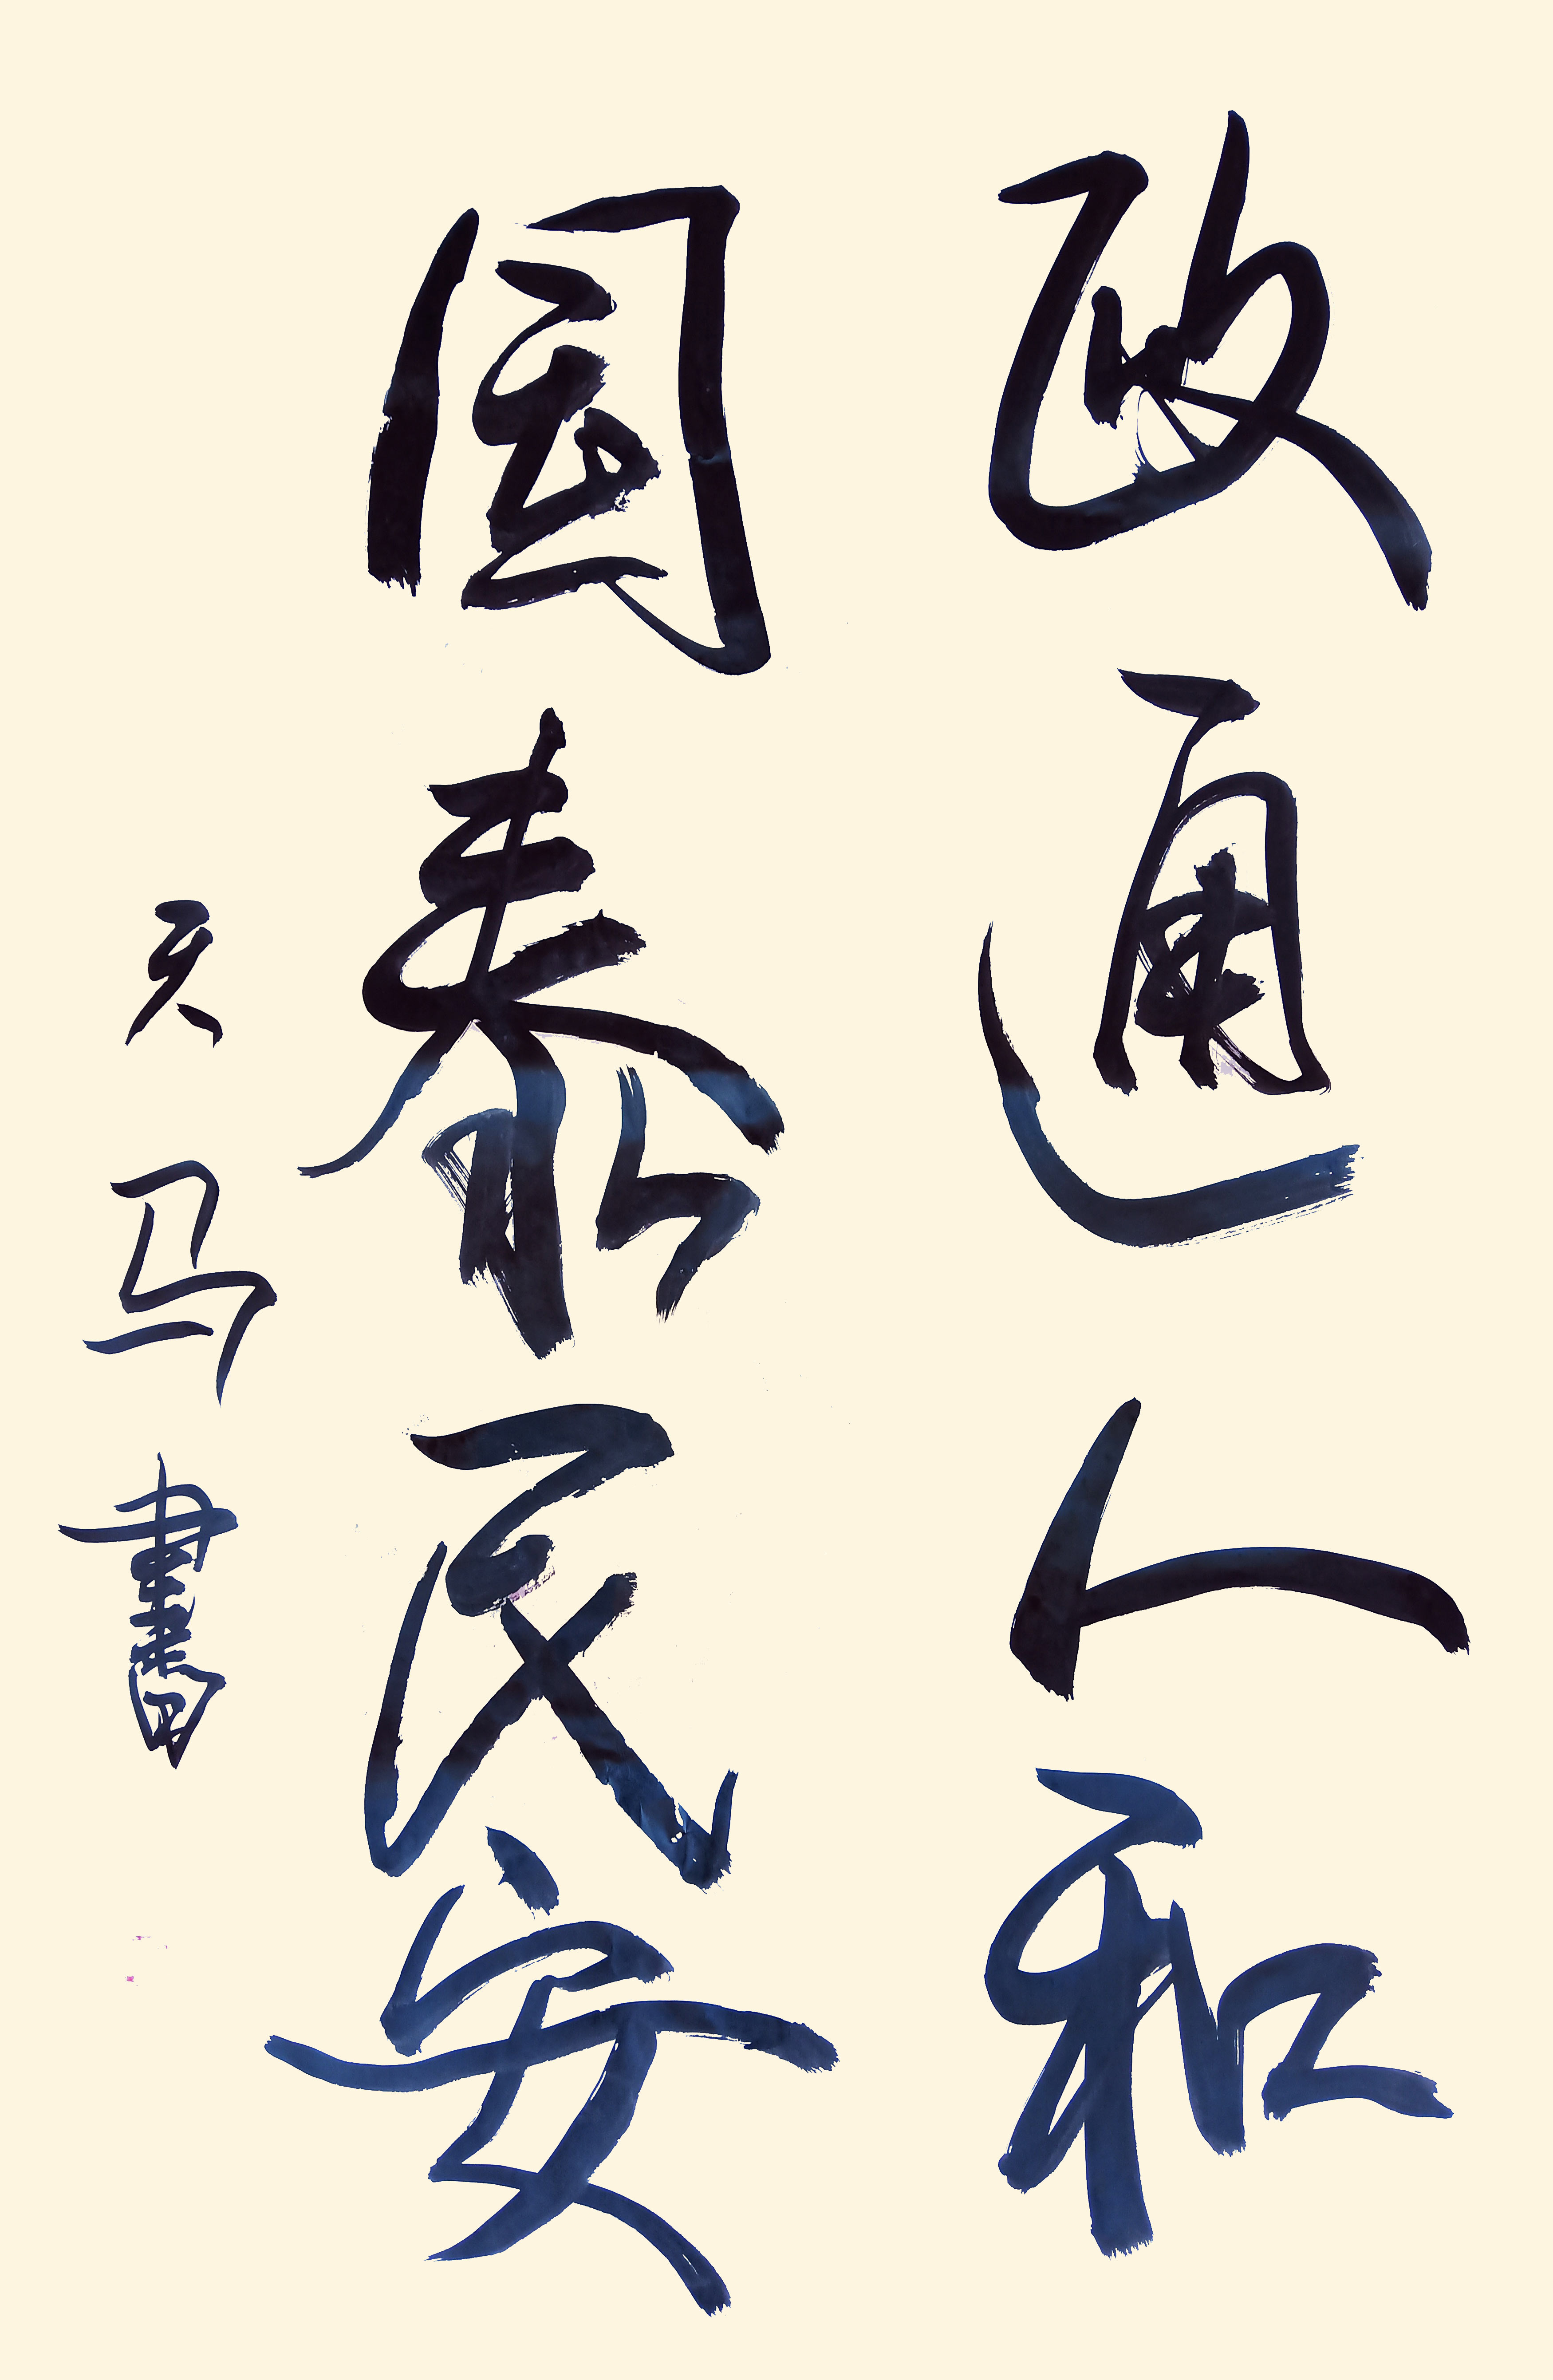 政通人和
国泰民安
天马書